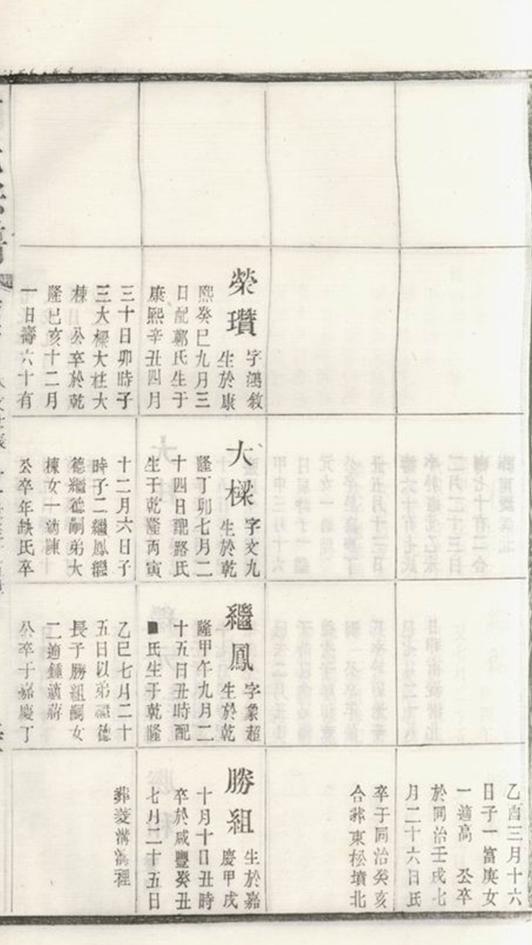 榮瓚
字鴻敘
生於康
熙癸巳九月三
日配鄭氏生于
康熙辛丑四月
三十日卯時子
三大樑大柱大
棟 公卒於乾
隆己亥十二月
一日壽六十有
大樑
字文九
生於乾
隆丁卯七月二
十四日配路氏
生于乾隆丙寅
十二月六日子
時子二繼鳳繼
德繼德嗣弟大
棟女一適陳
公卒年缺氏卒
繼鳳
字象超
生於乾
隆甲午九月二
十五日丑時配
氏生于乾隆
乙巳七月二十
五日以弟繼德
長子勝組嗣女
二適鍾適蔣
公卒于嘉慶丁
乙酉三月十六
日子一富庚女
一適高 公卒
於同治壬戌七
月二十六日氏
卒于同治癸亥
合葬東松墳北
勝組
生於嘉
慶甲戌
十月十日丑時
卒於咸豐癸丑
七月二十五日
葬菱溝溝裡